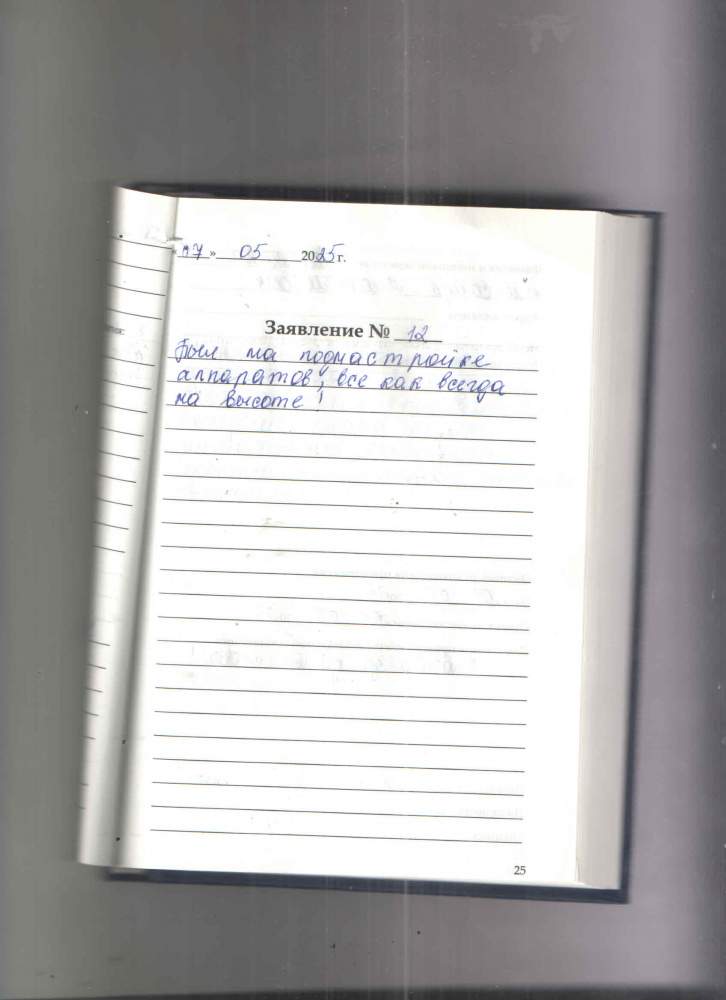 «17» 05 2025 г.
Заявление № 12
Был на поднастройке
аппаратов, все как всегда
на высоте!
25